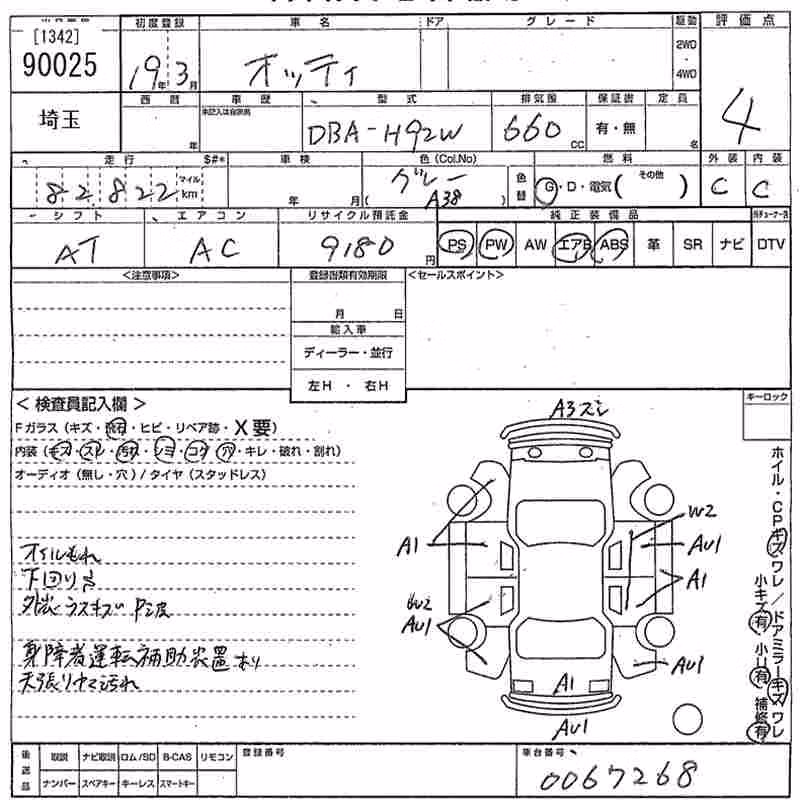 [1342]
90025
初度登録 車名 ドア グレード 駆動 評価点
19年 3月 オッティ 2WD ・ 4WD 4
埼玉
西暦 車歴 型式 排気量 保証書 定員
未記入は自家用
年 DBA-H92W 660 CC 有・無 名
走行 $#* 車検 色(Col.No) 色替 燃料 外装 内装
82822 マイル km 年 月 グレー ( A38 ) G・D・電気( その他 ) C C
シフト エアコン リサイクル預託金 純正装備品
AT AC 9180円 PS PW AW エアB ABS 革 SR ナビ DTV
<注意事項> 登録書類有効期限 <セールスポイント>
月 日
輸入車
ディーラー・並行
左H ・ 右H
<検査員記入欄> キーロック
Fガラス(キズ・飛石・ヒビ・リペア跡・X要)
内装(キズ・スレ・汚れ・シミ・コゲ・穴・キレ・破れ・割れ)
オーディオ(無し・穴)/タイヤ(スタッドレス)
オイルもれ
下回りS
身障者運転補助装置あり
天張りヤマ汚れ
A3ズミ
A1
W2
AU1
A1
W2
AU1
AU1
A1
AU1
ホイル・CPキズワレ/ドアミラーキズワレ
小キズ有 小U有 補修有
後送品 取説 ナビ取説 ロム/SD B-CAS リモコン 登録番号 車台番号
ナンバー スペアキー キーレス スマートキー 0067268